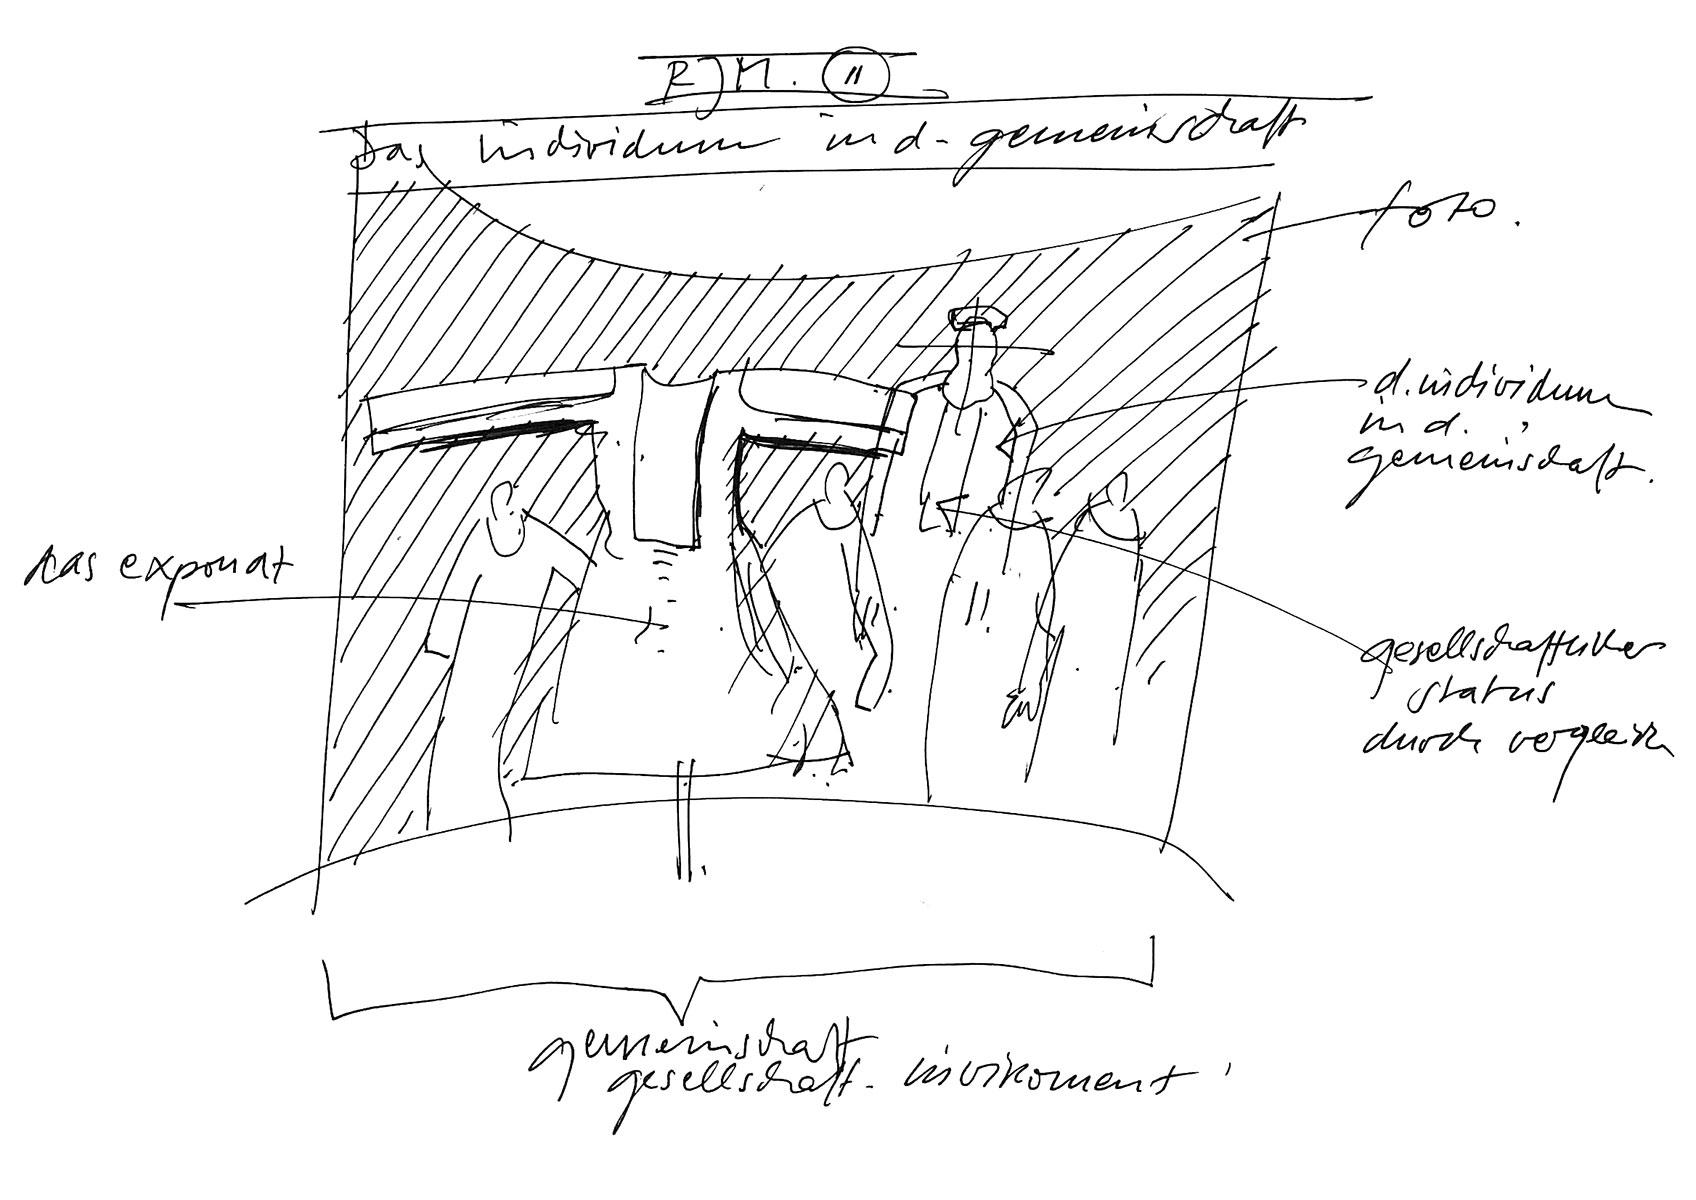 RJM. II
Das individuum in d- gemeinschaft
foto.
d. individuum
in d.
gemeinschaft.
das exponat
gesellschaftlicher
status
durch vergleich
gemeinschaft
gesellschaft- invironment